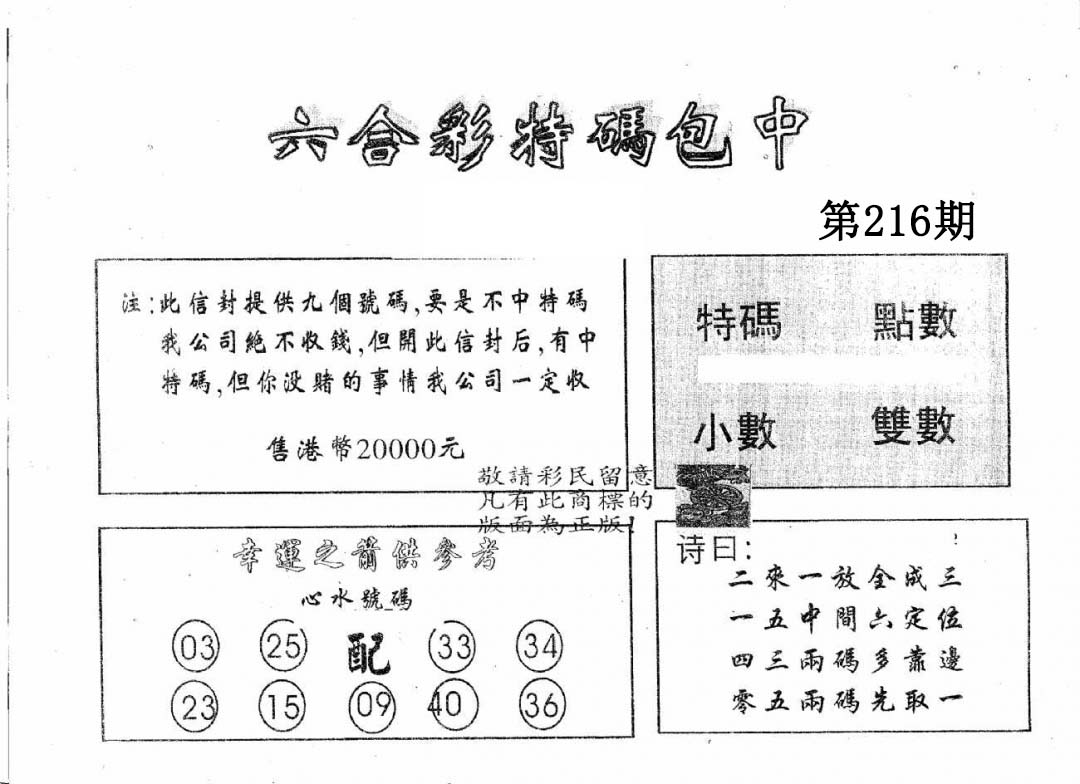 六合彩特碼包中
第216期
注:此信封提供九個號碼,要是不中特碼
我公司絶不收錢,但開此信封后,有中
特碼,但你没賭的事情我公司一定收
售港幣20000元
特碼 點數
小數 雙數
敬請彩民留意
凡有此商標的
版面為正版!
幸運之箭供參考
心水號碼
03 25 配 33 34
23 15 09 40 36
诗曰:
二來一放全成三
一五中間六定位
四三兩碼多靠邊
零五兩碼先取一